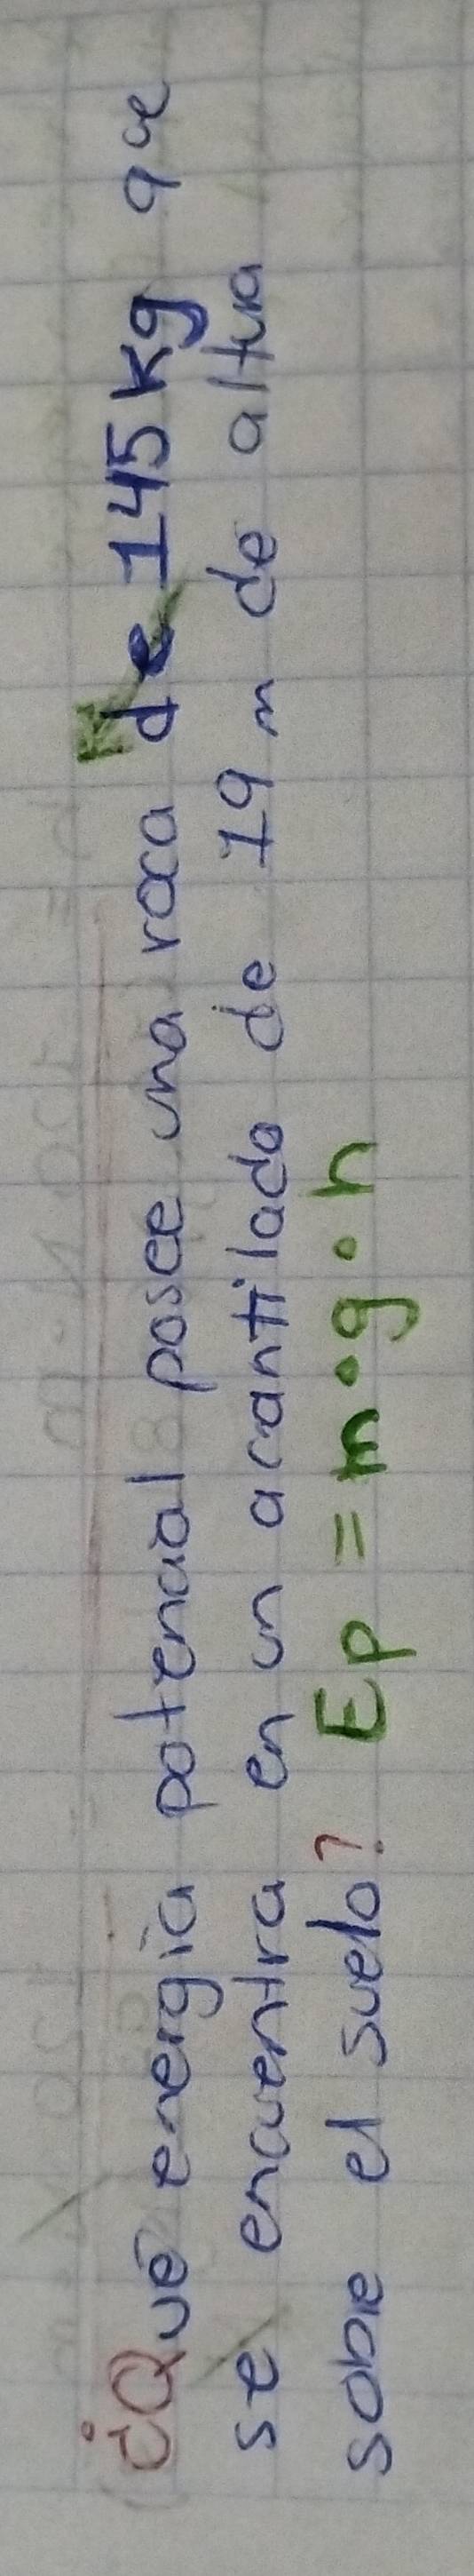 ¿Qué energía potencial posee una roca de 145 kg que
se encuentra en un acantilado de 19 m de altura
sobre el suelo? Ep = m•g•h